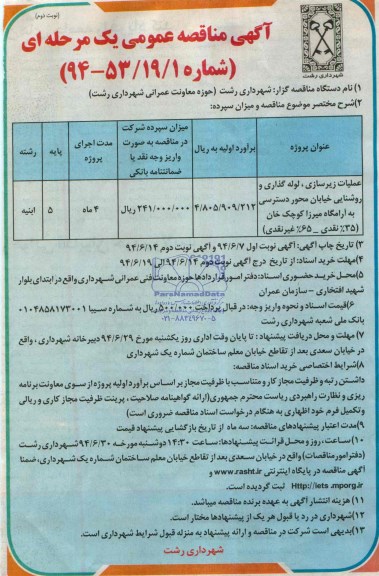 (نوبت دوم)
آگهی مناقصه عمومی یک مرحله ای
(شماره ۹۴-۵۳/۱۹/۱)
شهرداری رشت
۱) نام دستگاه مناقصه گزار: شهرداری رشت (حوزه معاونت عمرانی شهرداری رشت)
۲) شرح مختصر موضوع مناقصه و میزان سپرده:
عنوان پروژه
برآورد اولیه به ریال
میزان سپرده شرکت در مناقصه به صورت واریز وجه نقد یا ضمانتنامه بانکی
مدت اجرای پروژه
پایه
رشته
عملیات زیرسازی ، لوله گذاری و روشنایی خیابان محور دسترسی به آرامگاه میرزا کوچک خان (۳۵٪ نقدی _ ۶۵٪ غیرنقدی)
۴/۸۰۵/۹۰۹/۲۱۲
۲۴۱/۰۰۰/۰۰۰ ریال
۴ ماه
۵
ابنیه
۳) تاریخ چاپ آگهی: آگهی نوبت اول ۹۴/۶/۷ و آگهی نوبت دوم ۹۴/۶/۱۴
۴) مهلت خرید اسناد: از تاریخ درج آگهی نوبت دوم ۹۴/۶/۱۴ الی ۹۴/۶/۱۹
۵) محل خرید حضوری اسناد: دفتر امور قراردادها حوزه معاونت فنی عمرانی شهرداری واقع در ابتدای بلوار
شهید افتخاری – سازمان عمران
۶) قیمت اسناد و نحوه واریز وجه: در قبال پرداخت ۵۰۰/۰۰۰ ریال به شماره سیبا ۰۱۰۴۸۵۸۱۷۳۰۰۱
بانک ملی شعبه شهرداری رشت
۷) مهلت و محل دریافت پیشنهاد : تا پایان وقت اداری روز یکشنبه مورخ ۹۴/۶/۲۹ دبیرخانه شهرداری ، واقع
در خیابان سعدی بعد از تقاطع خیابان معلم ساختمان شماره یک شهرداری
۸) شرایط اختصاصی خرید اسناد مناقصه:
داشتن رتبه و ظرفیت مجاز کار و متناسب با ظرفیت مجاز بر اساس برآورد اولیه پروژه از سوی معاونت برنامه
ریزی و نظارت راهبردی ریاست محترم جمهوری (ارائه گواهینامه صلاحیت ، پرینت ظرفیت مجاز کاری و ریالی
و تکمیل فرم خود اظهاری به هنگام درخواست اسناد مناقصه ضروری است)
۹) مدت اعتبار پیشنهادهای مناقصه: سه ماه از تاریخ بازگشایی پیشنهاد قیمت
۱۰) ساعت، روز و محل قرائت پیشنهادها: ساعت ۱۴:۳۰ دوشنبه مورخه ۹۴/۶/۳۰ شهرداری رشت
(دفتر امور مناقصات) واقع در خیابان سعدی بعد از تقاطع خیابان معلم ساختمان شماره یک شهرداری، ضمنا
آگهی مناقصه در پایگاه اینترنتی www.rasht.ir و
Http://iets .mporg.ir ثبت گردیده است.
۱۱) هزینه انتشار آگهی به عهده برنده مناقصه میباشد.
۱۲) شهرداری در رد یا قبول هر یک از پیشنهادها مختار است.
۱۳) بدیهی است شرکت در مناقصه و ارائه پیشنهاد به منزله قبول شرایط شهرداری است.
شهرداری رشت
ParsNamadData
۰۲۱-۸۸۳۴۹۶۷۰-۵